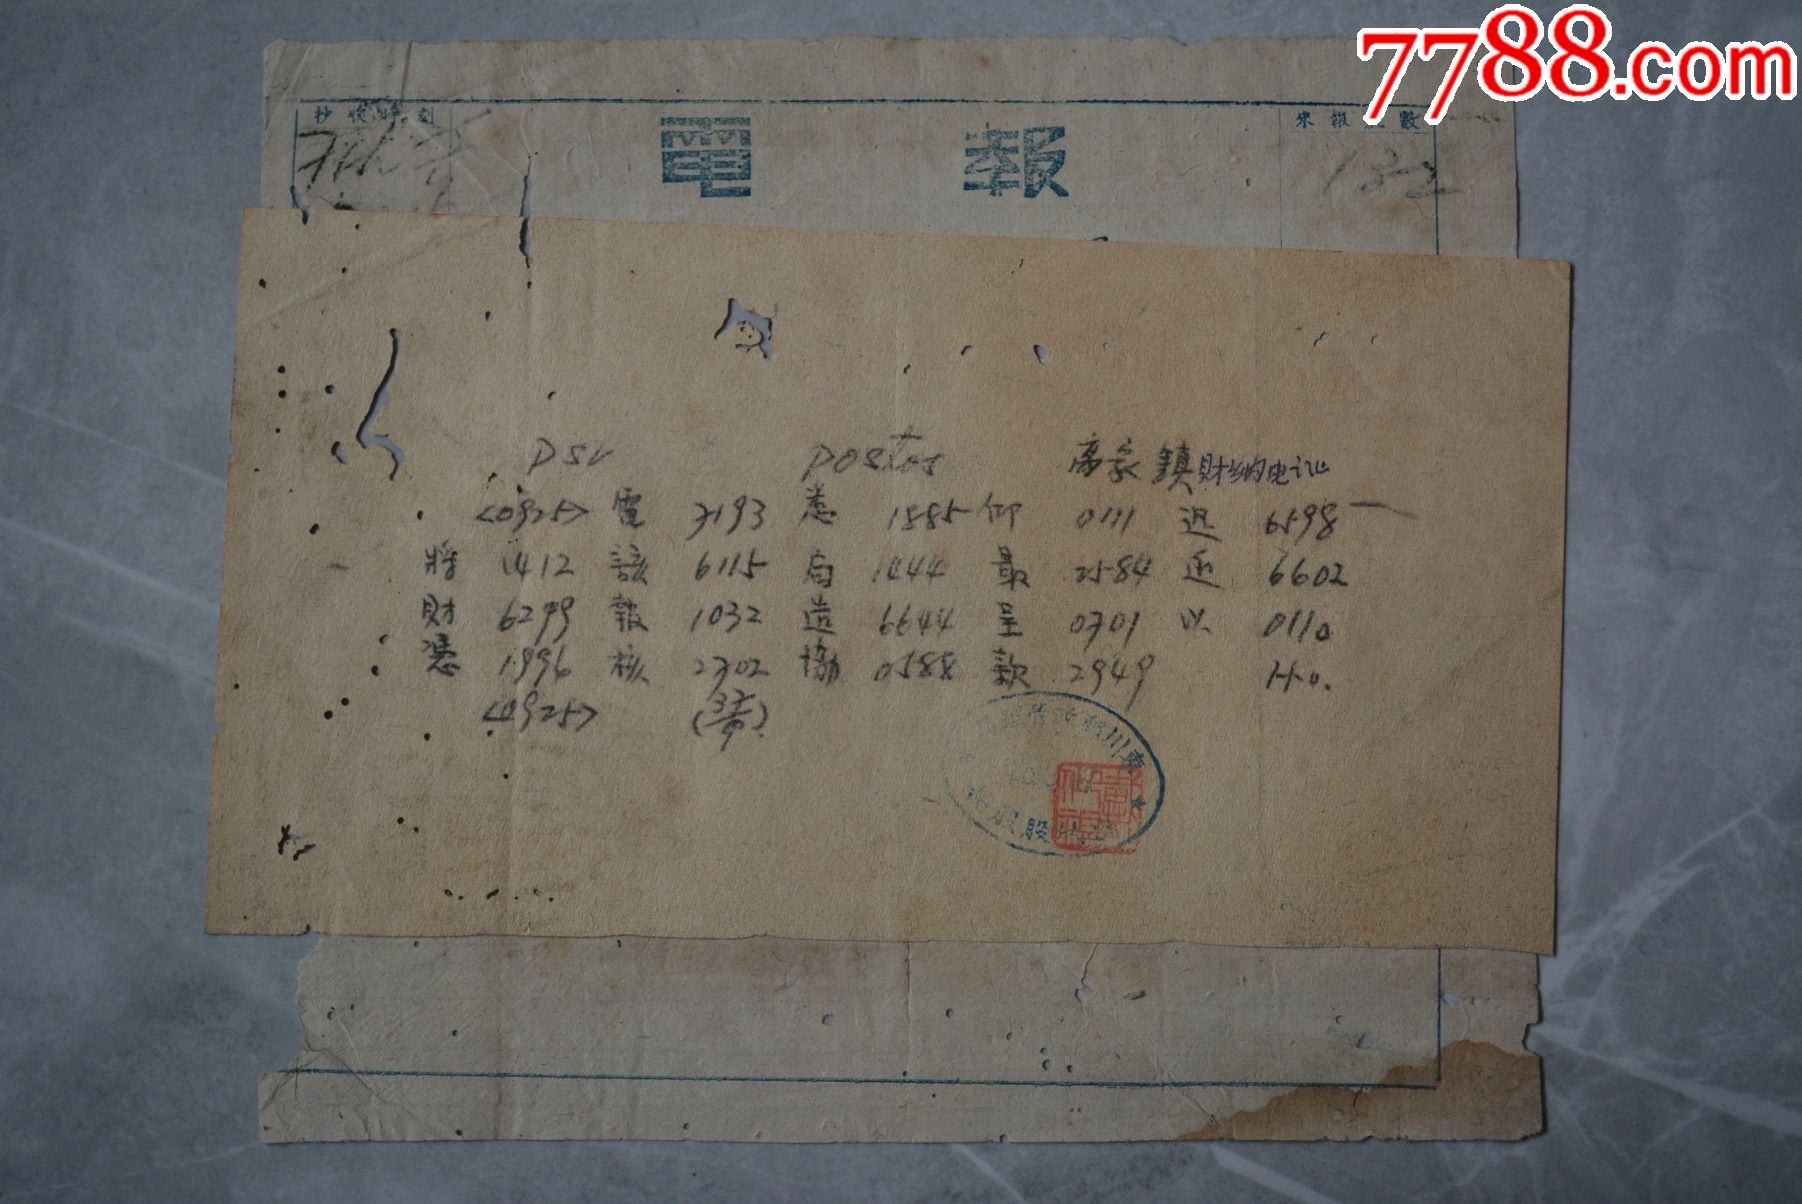 7788.com
抄收時刻
電報
來報號數
132
DSV Postos 高家鎮 财纳电讫
<0925> 電 7193 悉 1885 仰 0111 迅 6598
將 1412 該 6115 局 1444 最 2584 近 6602
財 6299 報 1032 造 6644 呈 0701 以 0110
憑 1996 核 2702 撥 0588 款 2949 H.o.
<0925>